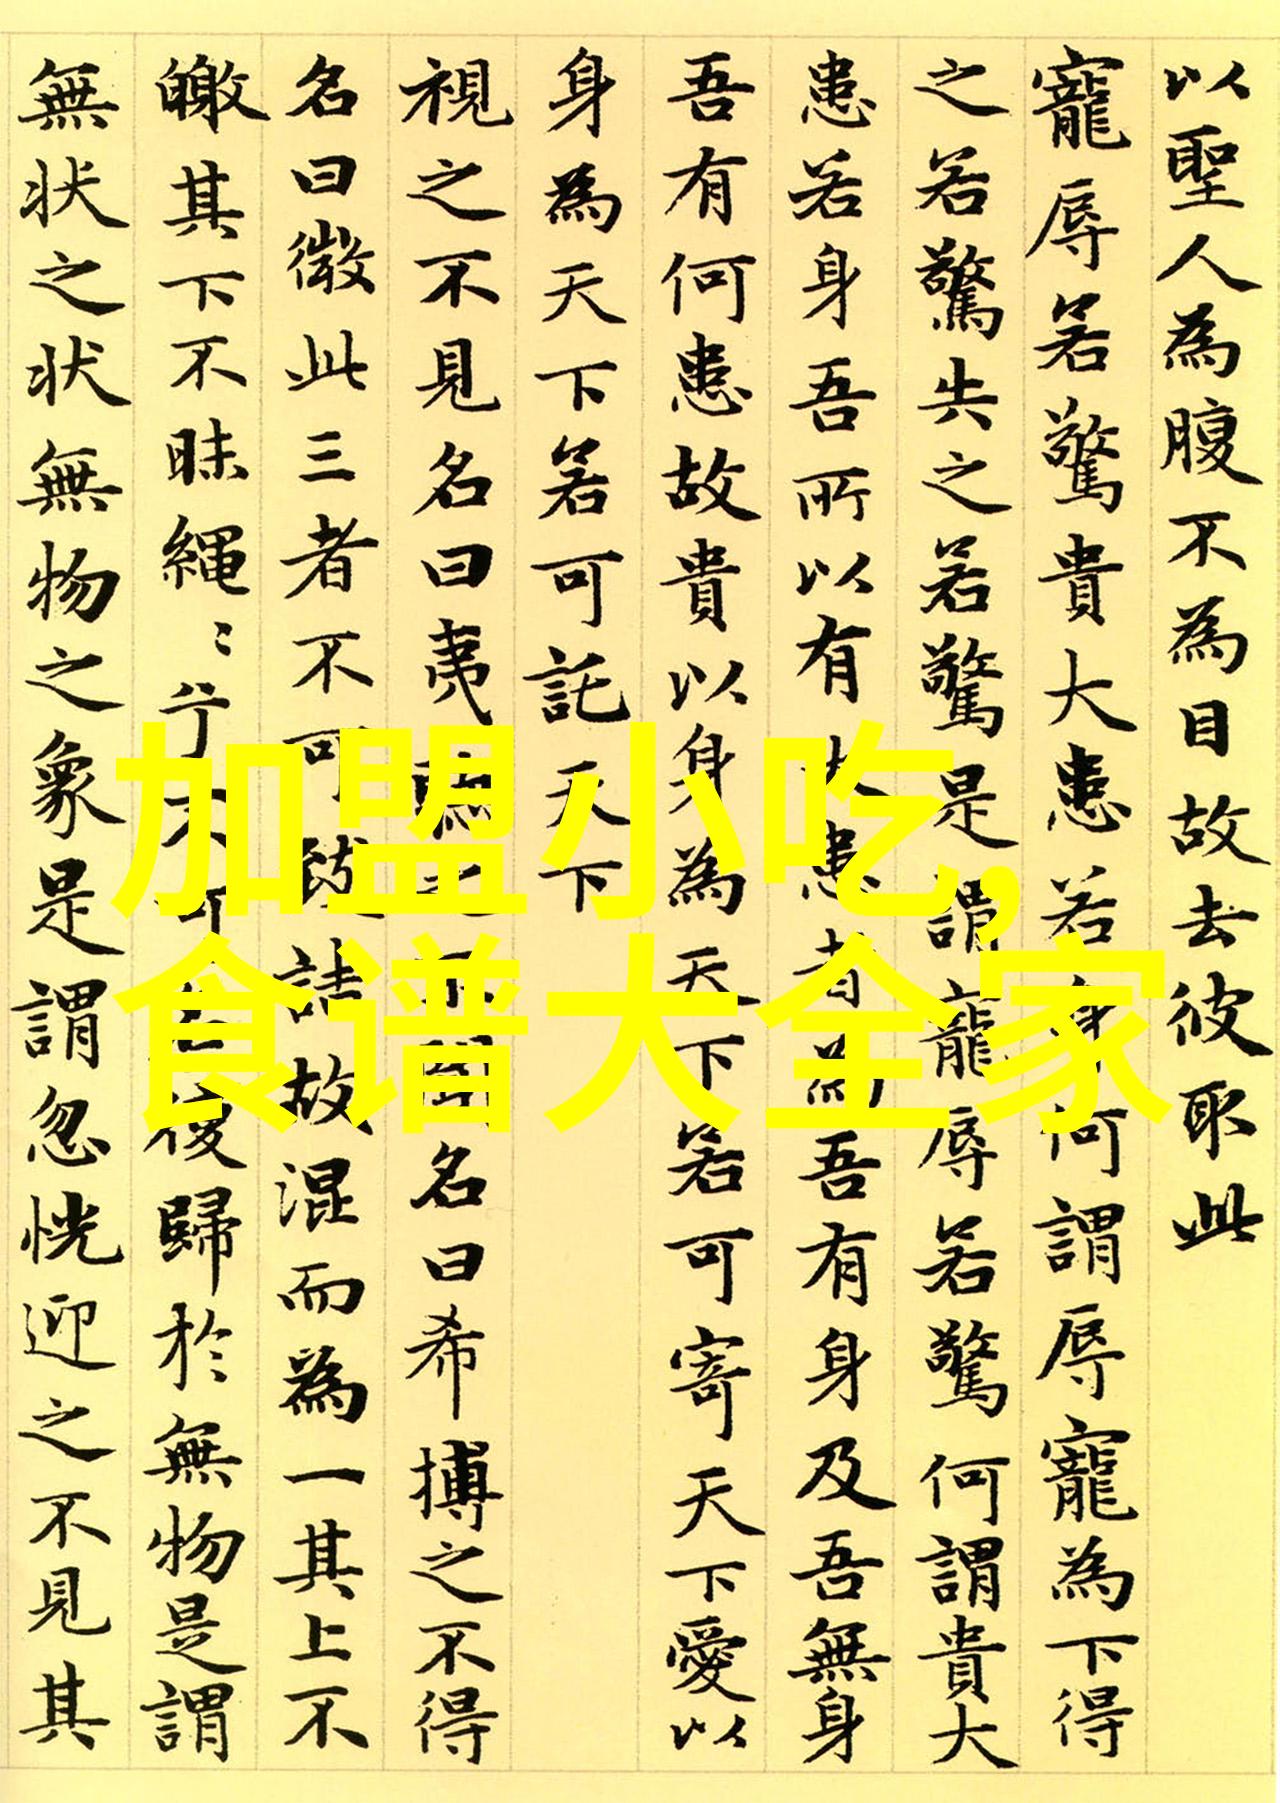 以聖人為腹不為目故去彼取此
寵辱若驚貴大患若身何謂辱寵為下得
之若驚失之若驚是謂寵辱若驚何謂貴大
患若身吾所以有大患者為吾有身及吾無身
吾有何患故貴以身為天下若可寄天下愛以
身為天下若可託天下
視之不見名曰夷聽之不聞名曰希搏之不得
名曰微此三者不可致詰故混而為一其上不
皦其下不昧繩〻兮不可名復歸於無物是謂
無状之状無物之象是謂忽恍迎之不見其
加盟小吃,
食谱大全家